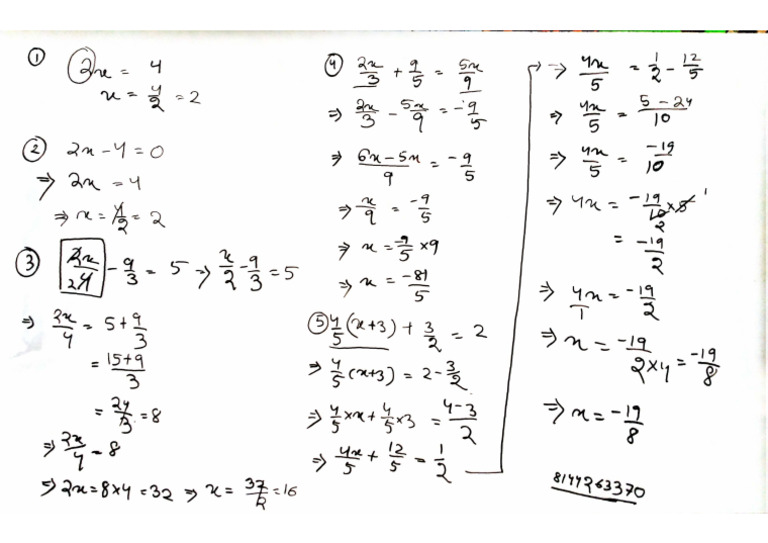 ① 2x = 4
x = 4/2 = 2
② 2x - 4 = 0
⇒ 2x = 4
⇒ x = 4/2 = 2
③ 2x/4 - 9/3 = 5 → x/2 - 9/3 = 5
⇒ 2x/4 = 5 + 9/3
= 15+9/3
= 24/3 = 8
⇒ 2x/4 = 8
⇒ 2x = 8×4 = 32 ⇒ x = 32/2 = 16
④ 2x/3 + 9/5 = 5x/9
⇒ 2x/3 - 5x/9 = -9/5
⇒ 6x-5x/9 = -9/5
⇒ x/9 = -9/5
⇒ x = -9/5 × 9
⇒ x = -81/5
⑤ 4/5 (x+3) + 3/2 = 2
⇒ 4/5 (x+3) = 2 - 3/2
⇒ 4/5 × x + 4/5 × 3 = 4-3/2
⇒ 4x/5 + 12/5 = 1/2
→ 4x/5 = 1/2 - 12/5
⇒ 4x/5 = 5-24/10
⇒ 4x/5 = -19/10
⇒ 4x = -19/10 × 5 1
2
= -19/2
⇒ 4x/1 = -19/2
⇒ x = -19/2×4 = -19/8
⇒ x = -19/8
8144263370